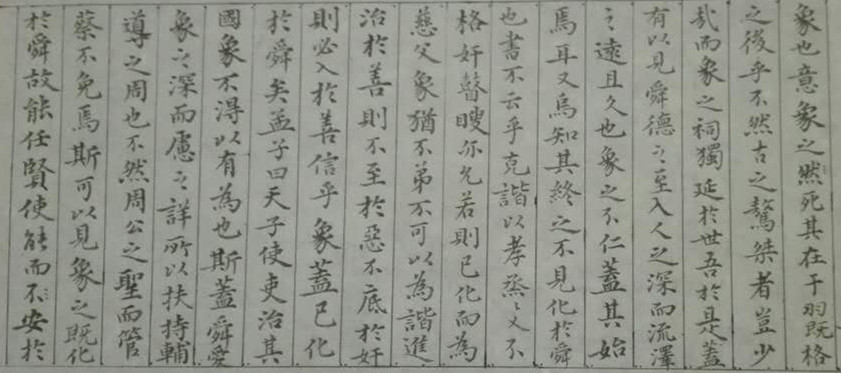 象也意象之然死其在于羽既格
之後乎不然古之驁桀者豈少
哉而象之祠獨延於世吾於是蓋
有以見舜德之至入人之深而流澤
之遠且久也象之不仁蓋其始
焉耳又烏知其終之不見化於舜
也書不云乎克諧以孝烝〻乂不
格奸瞽瞍亦允若則已化而為
慈父象猶不弟不可以為諧進
治於善則不至於惡不底於奸
則必入於善信乎象蓋已化
於舜矣孟子曰天子使吏治其
國象不得以有為也斯蓋舜愛
象之深而慮之詳所以扶持輔
導之周也不然周公之聖而管
蔡不免焉斯可以見象之既化
於舜故能任賢使能而不安於